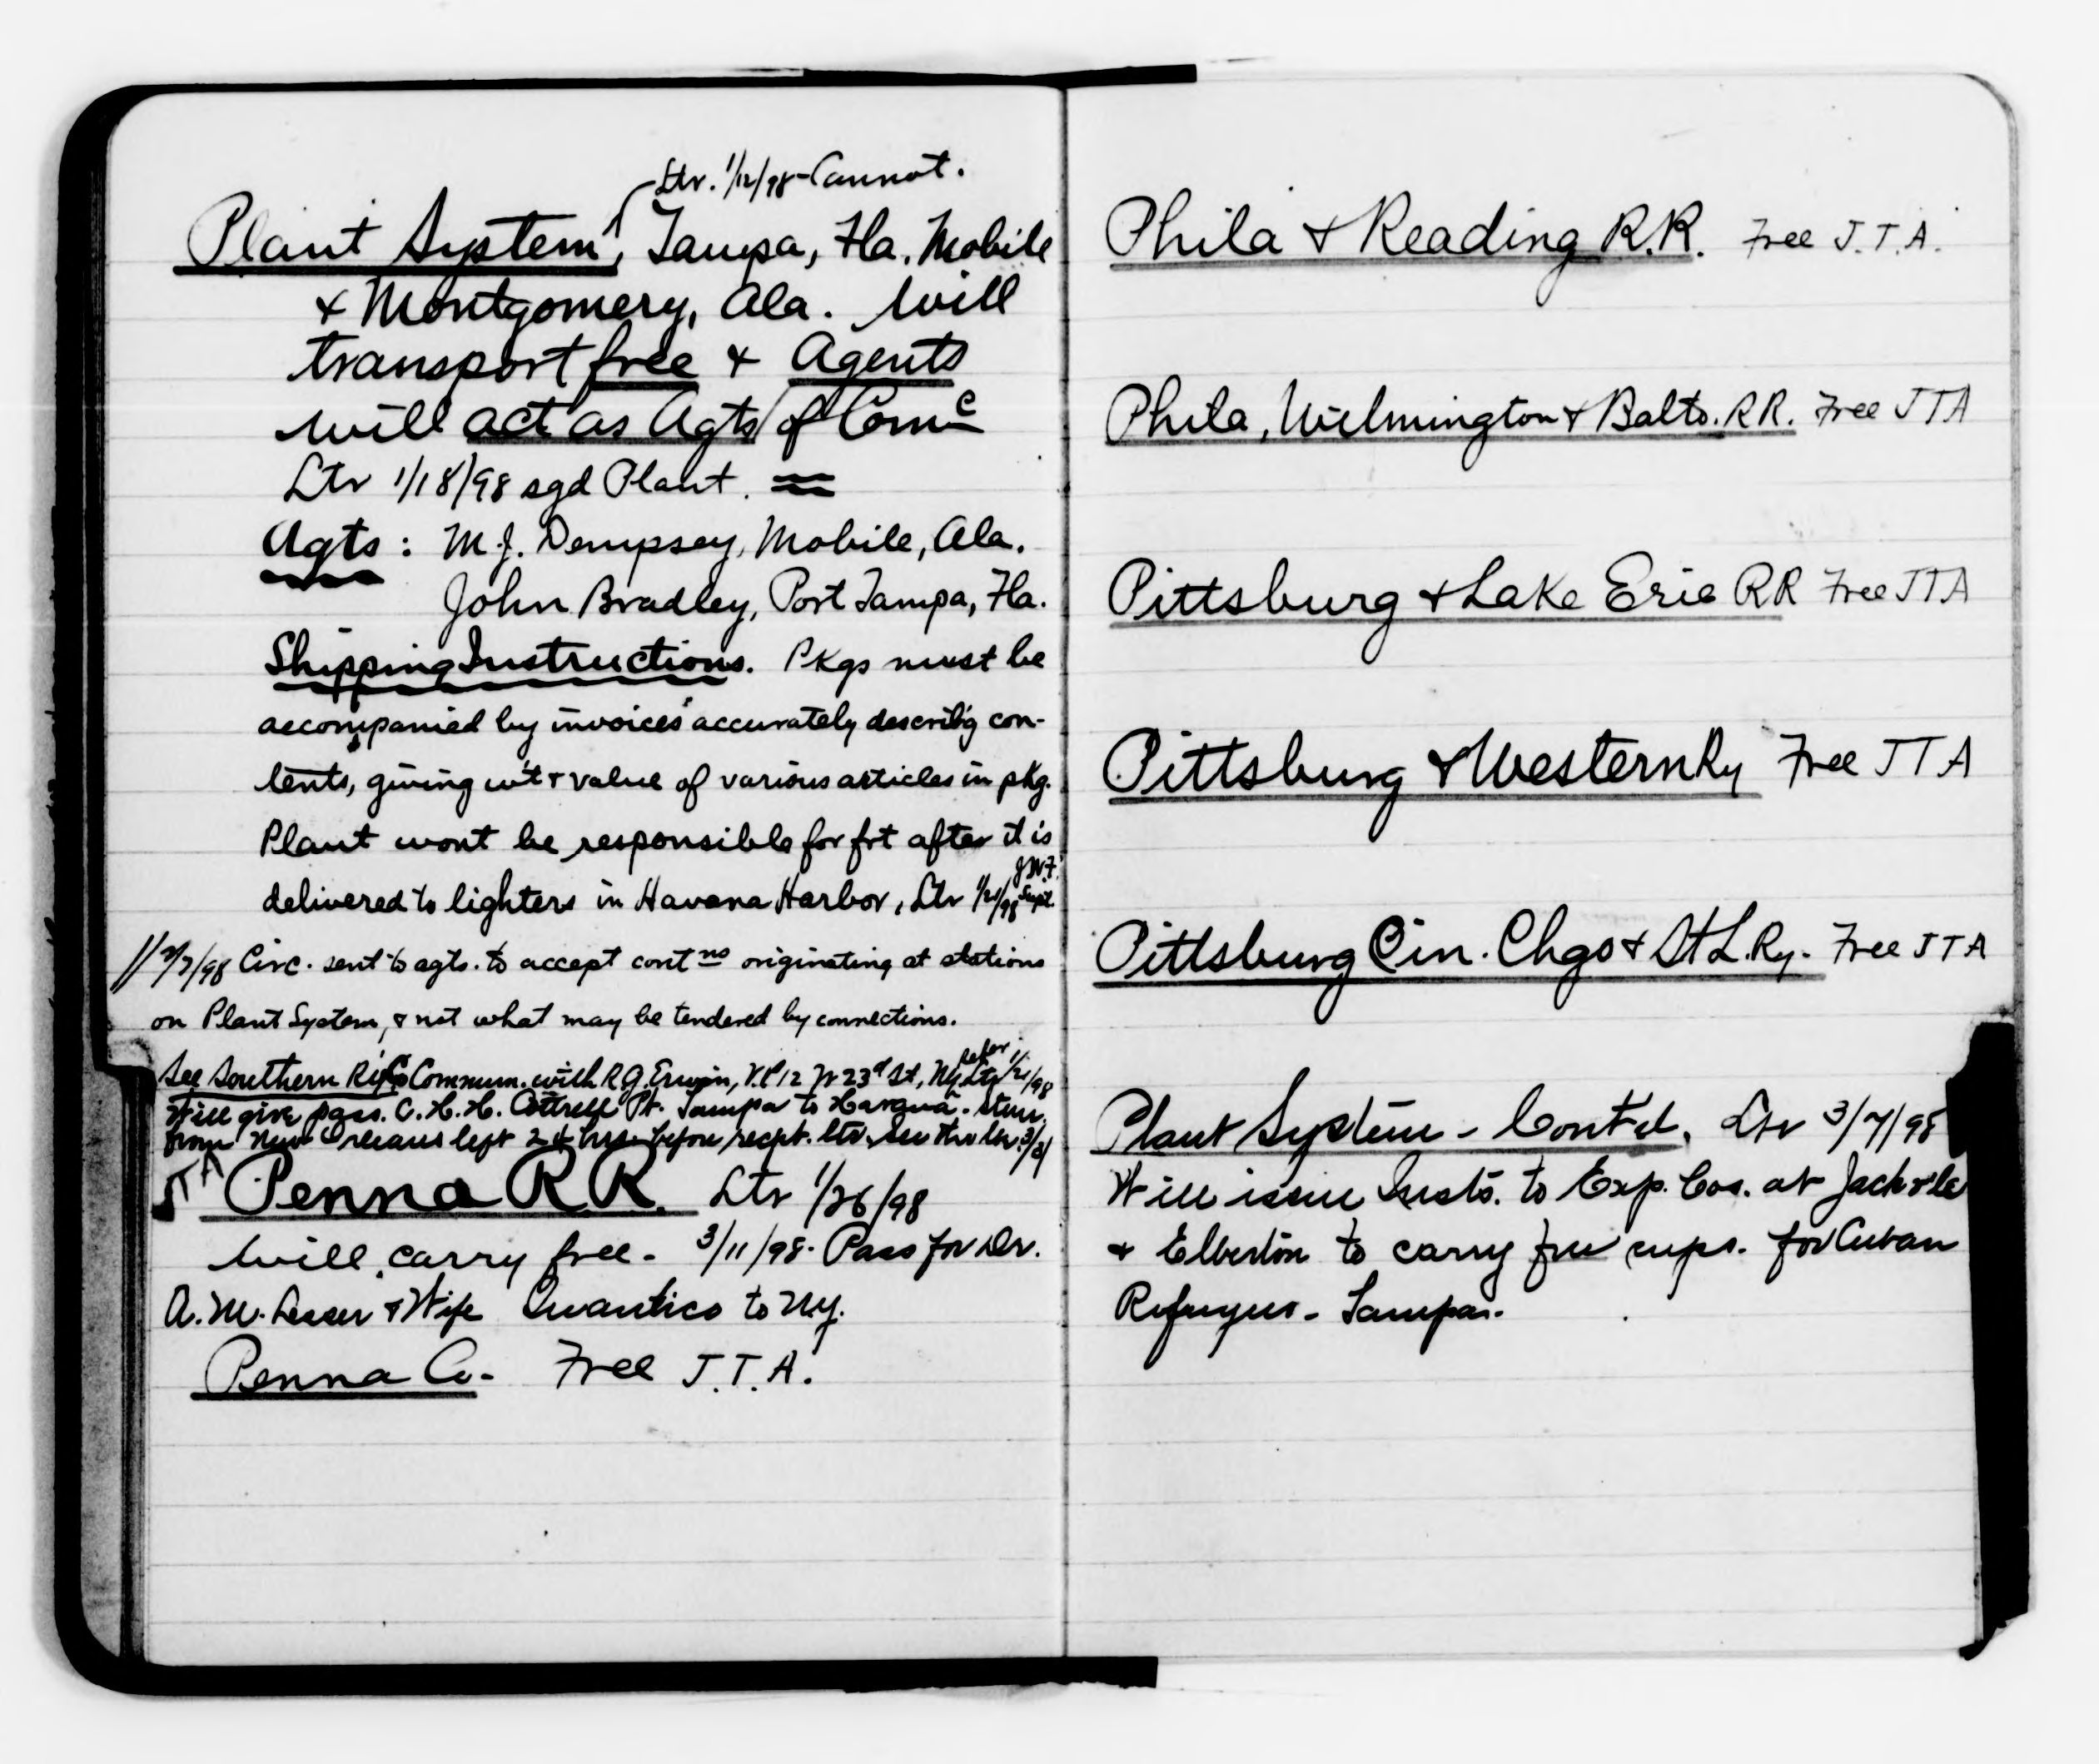 Ltr. 1/12/98 - Cannot.
Plant System, Tampa, Fla. Mobile
& Montgomery, Ala. Will
transport free & Agents
will act as Agts of Com e
Ltr 1/18/98 sgd Plant.
Agts: M.J. Dempsey, Mobile, Ala.
John Bradley, Port Tampa, Fla.
Shipping Instructions. Pkgs must be
accompanied by invoices accurately describ'g con-
tents, giving w't & value of various articles in pkg.
Plant wont be responsible for frt after it is
delivered to lighters in Havana Harbor, Ltr 1/21/98 J.W.F. Supt.
// 2/7/98 Circ. sent to agts. to accept cont ns originating at stations
on Plant System, & not what may be tendered by connections.
See Southern Commun. with R.G. Erwin, V.P. 12 W 23d St, NY. refer Ltr 1/21/98
Will give pass. C.H.H. Cottrell Pt. Tampa to Havana. Stmr.
from New Orleans left 24 hrs. before recpt. ltr. See thr ltr. 3/2/
JTA Penna R.R. Ltr 1/26/98
Will carry free - 3/11/98. Pass for Dr.
A. M. Lesser & Wife Quantico to NY.
Penna Co. Free J.T.A.
Phila & Reading R.R. Free J.T.A.
Phila, Wilmington & Balto. RR. Free JTA
Pittsburg & Lake Erie RR Free JTA
Pittsburg & Western Ry Free JTA
Pittsburg Cin. Chgo & St L. Ry. Free JTA
Plant System - Cont'd. Ltr 3/7/98
Will issue Insts. to Exp. Cos. at Jacksvle
& Elberton to carry free sups. for Cuban
Refugees - Tampa.